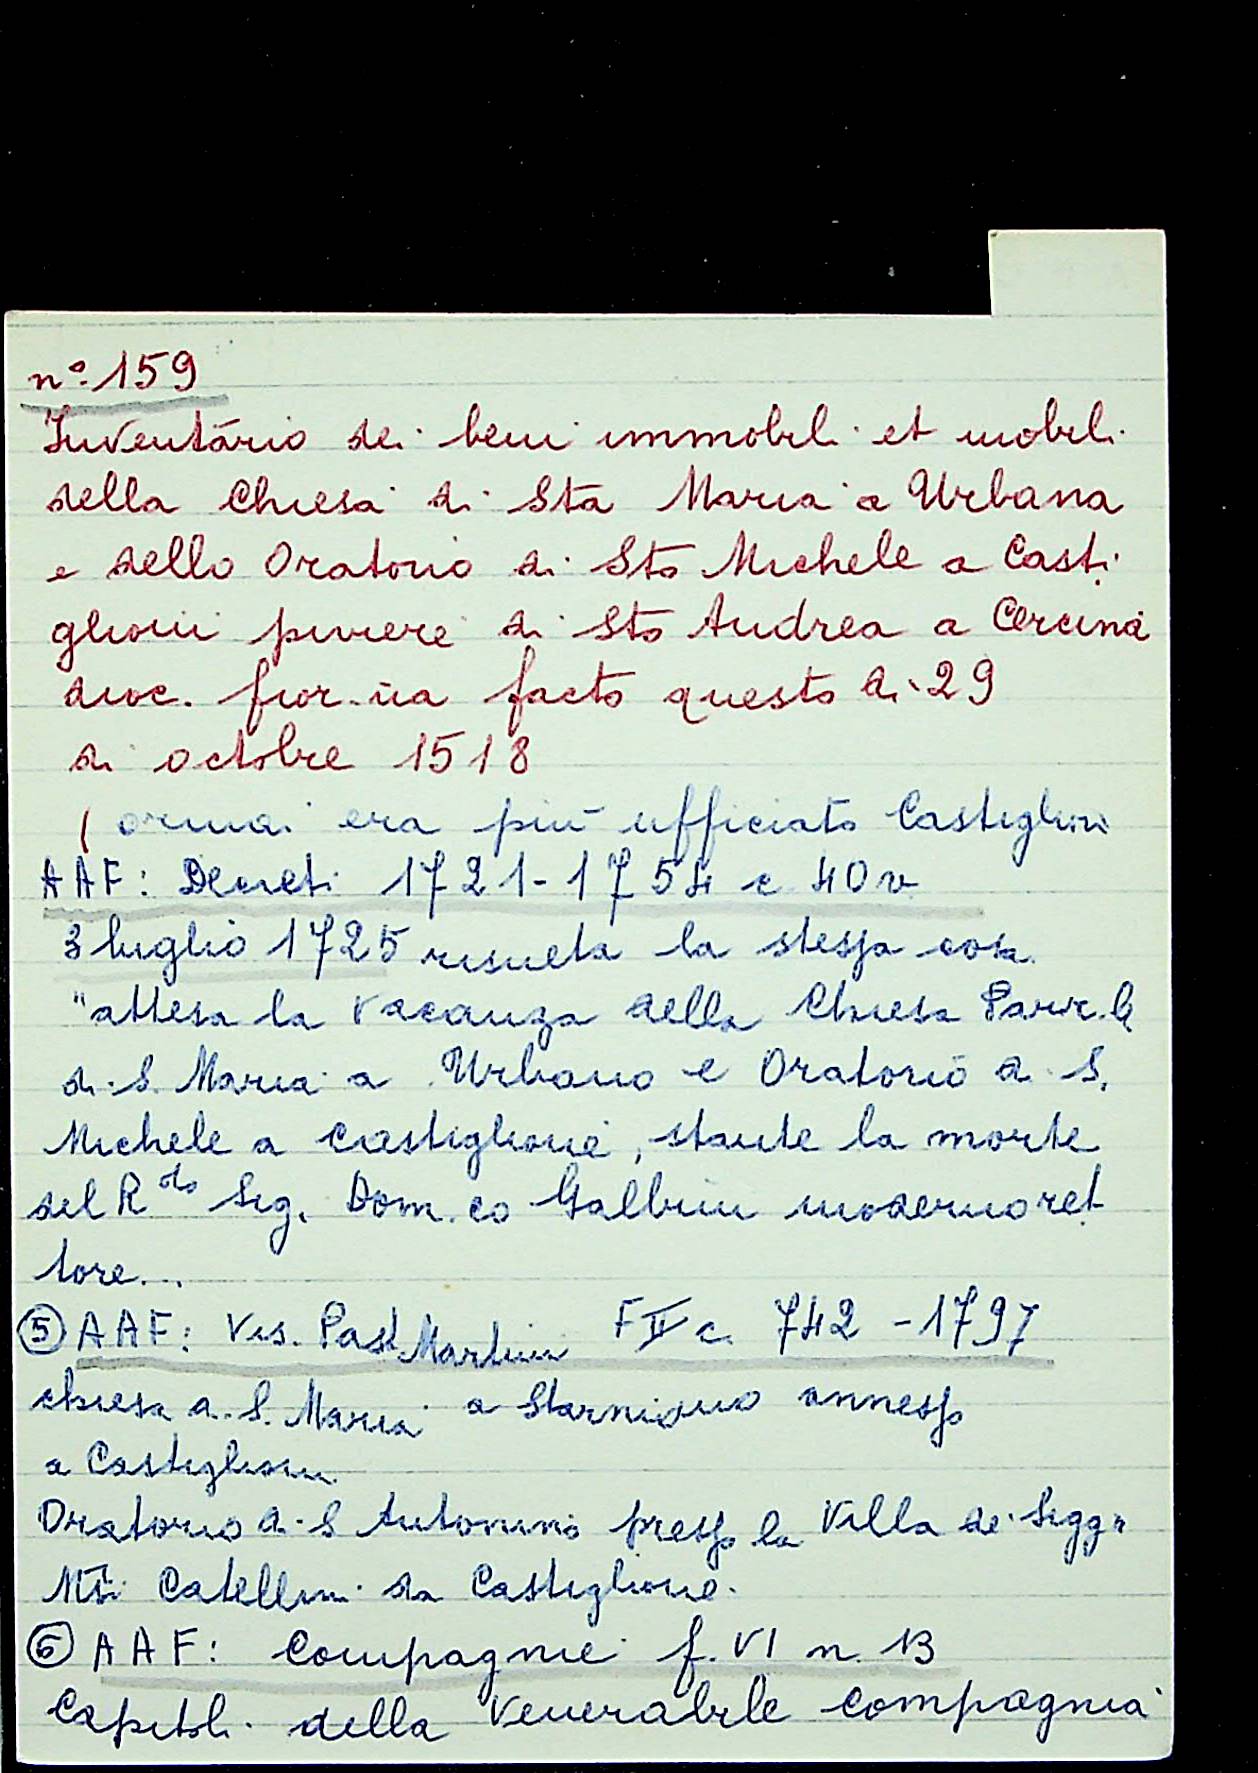 n° 159
Inventario dei beni immobili et mobili
della Chiesa di Sta Maria a Urbana
e dello Oratorio di Sto Michele a Casti
glioni piviere di Sto Andrea a Cercina
dioc. fior.na facto questo dì 29
di octobre 1518
( ormai era più ufficiato Castiglioni
AAF: Decreti 1721-1754 c 40v
3 luglio 1725 risulta la stessa cosa
"attesa la vacanza della Chiesa Parr.le
di S. Maria a Urbano e Oratorio di S.
Michele a Castiglione, stante la morte
del R.do Sig. Dom.co Galbini moderno ret
tore...
⑤ AAF: Vis. Past. Martini F II c. 742 - 1797
chiesa di S. Maria a Starniano annesso
a Castiglioni
Oratorio di S Antonino presso la Villa de Sigg.ri
Catellini da Castiglione.
⑥ AAF: Compagnie f. VI n. 13
Capitoli della Venerabile Compagnia